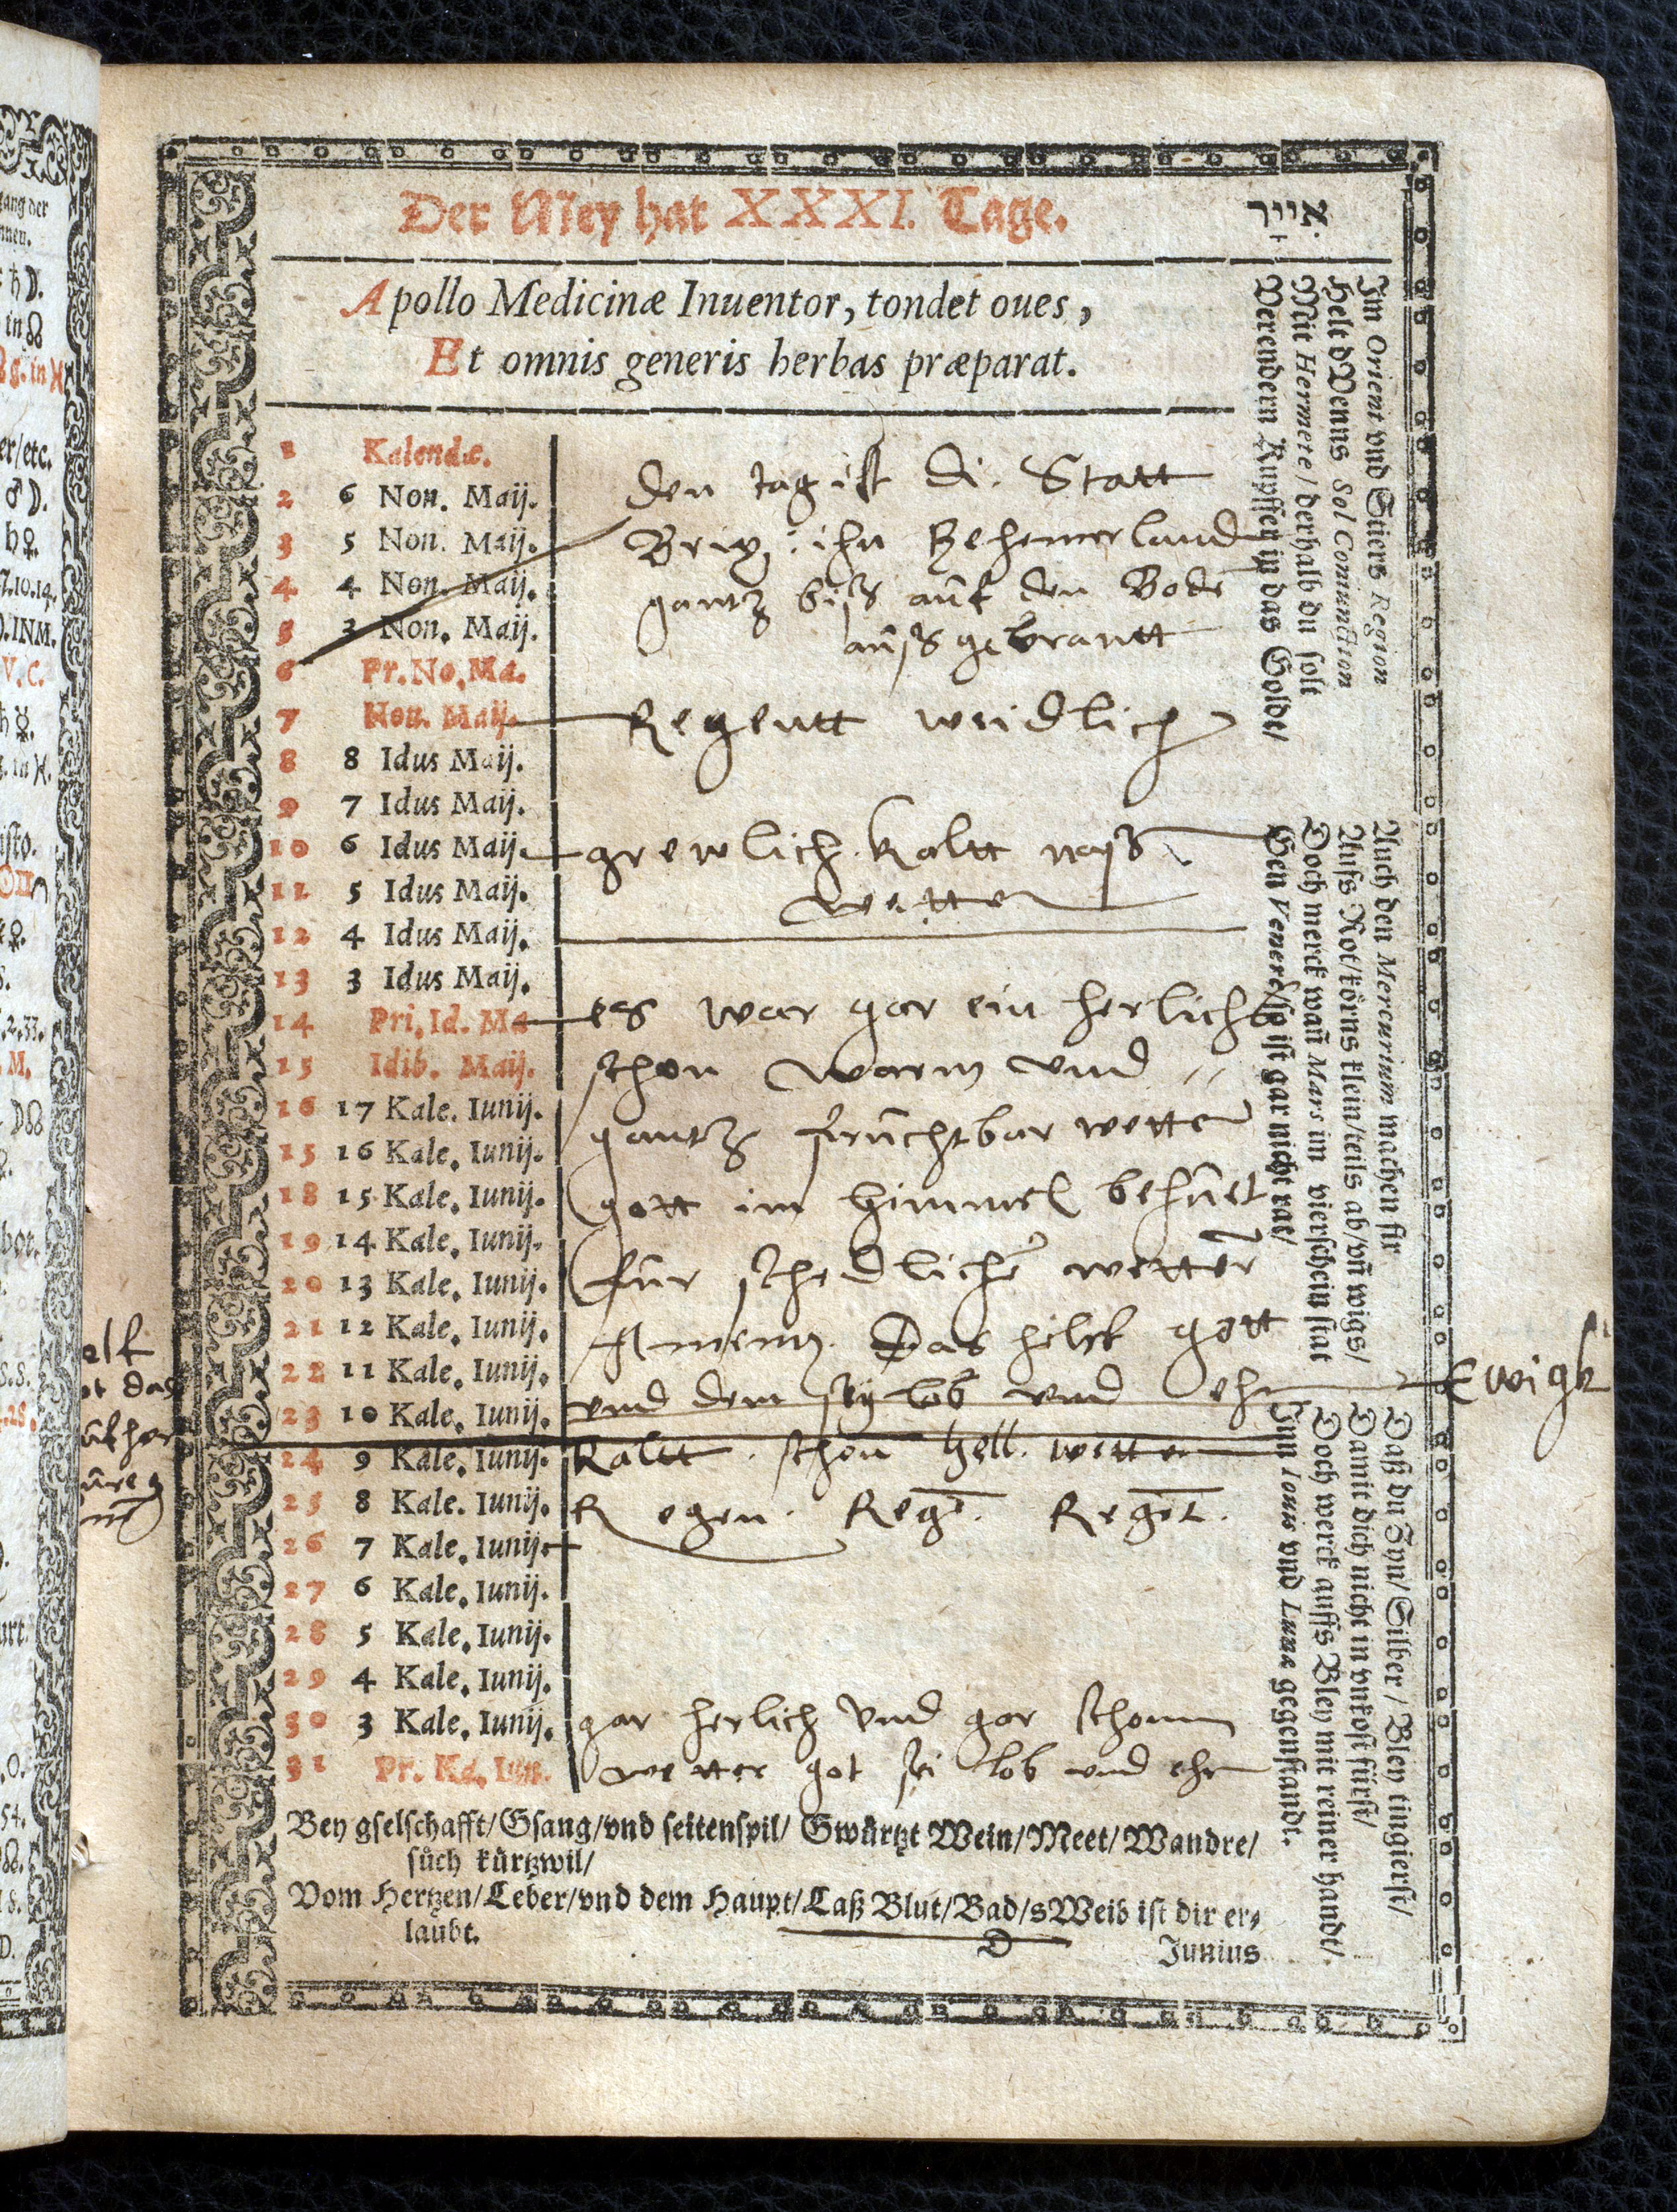 Der Mey hat XXXI. Tage.
אייר
Apollo Medicinæ Inuentor, tondet oues,
Et omnis generis herbas præparat.
1 Kalendæ.
2 6 Non. Maij.
3 5 Non. Maij.
4 4 Non. Maij.
5 3 Non. Maij.
6 Pr. No. Ma.
7 Non. Maij.
8 8 Idus Maij.
9 7 Idus Maij.
10 6 Idus Maij.
11 5 Idus Maij.
12 4 Idus Maij.
13 3 Idus Maij.
14 Pri. Id. Ma
15 Idib. Maij.
16 17 Kale. Iunij.
15 16 Kale. Iunij.
18 15 Kale. Iunij.
19 14 Kale. Iunij.
20 13 Kale. Iunij.
21 12 Kale. Iunij.
22 11 Kale. Iunij.
23 10 Kale. Iunij.
24 9 Kale. Iunij.
25 8 Kale. Iunij.
26 7 Kale. Iunij.
27 6 Kale. Iunij.
28 5 Kale. Iunij.
29 4 Kale. Iunij.
30 3 Kale. Iunij.
31 Pr. Ka. Iun.
den tag ist di Statt
Brix ihn Behemerland
gantz biß auf den Bodē
außgebrantt
Regentt weidlich
grewlich kaltt
wetter
es war gar ein herlich
schon warm vnd
gantz fruchtbar wetter
gott im himmel behuet
fur schedlichē wetter
Amenn. Das helf gott
vnd dem sey lob vnd ehr Ewigk
kaltt schon hell wetter
Regen. Regē. Regēt.
gar herlich vnd gar schonn
wetter got sei lob vnd ehr
Im Orient vnd Stiers Region
Helt dVenus Sol Coniunction
Mit Hermete / derhalb du solt
Verendern Kupffer in das Golde/
Auch den Mercurium machen fir
Aufs Rot/körns klein/teils ab/vñ wigs/
Doch merck wañ Mars im vierschein stat
Gen Venere/so ist gar nicht rat/
Daß du Zyn/Silber/Bley tingierst/
Damit dich nicht in vnkost fürst/
Doch werck auffs Bley mit reiner handt/
Im Iouis vnd Lunæ gegenstandt.
Bey gselschafft/Gsang/vnd seitenspil/ Gwürtzt Wein/Meet/Wandre/
sůch kürtzwil/
Vom Hertzen/Leber/vnd dem Haupt/Laß Blut/Bad/sWeib ist dir er⸗
laubt.
D
Junius